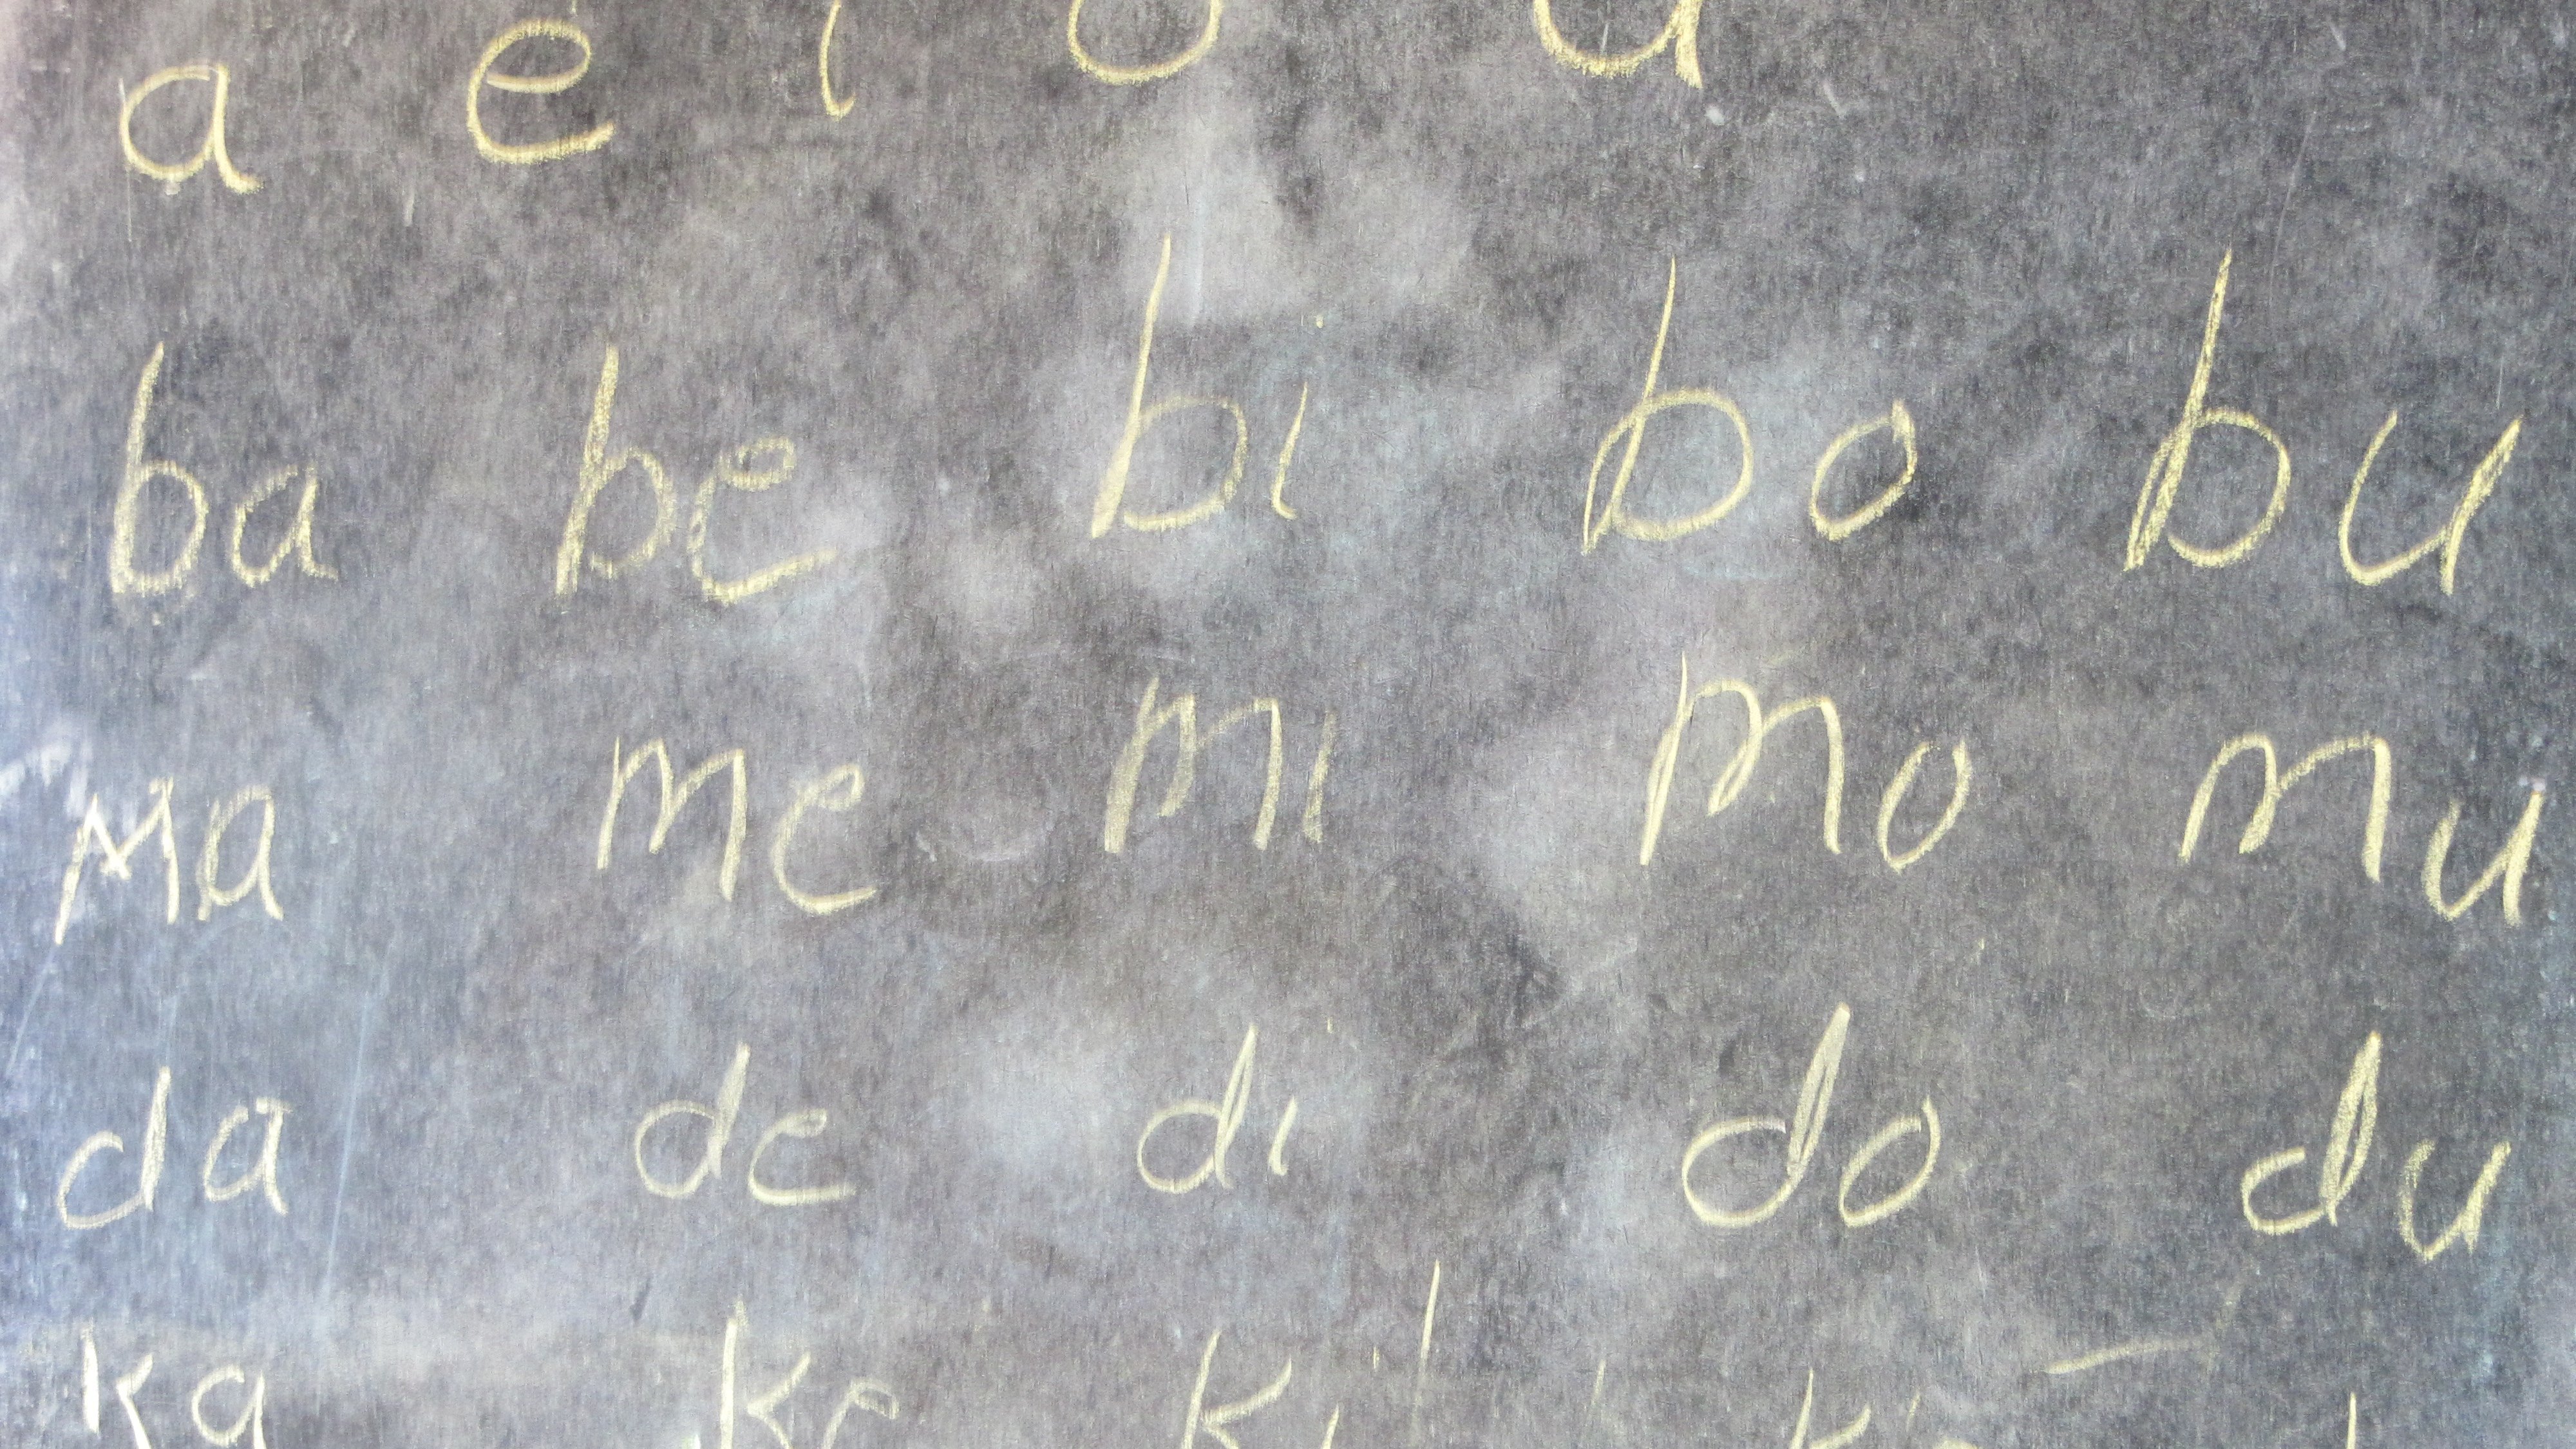 a e i o u
ba be bi bo bu
Ma me mi mo mu
da de di do du
ka ke ki